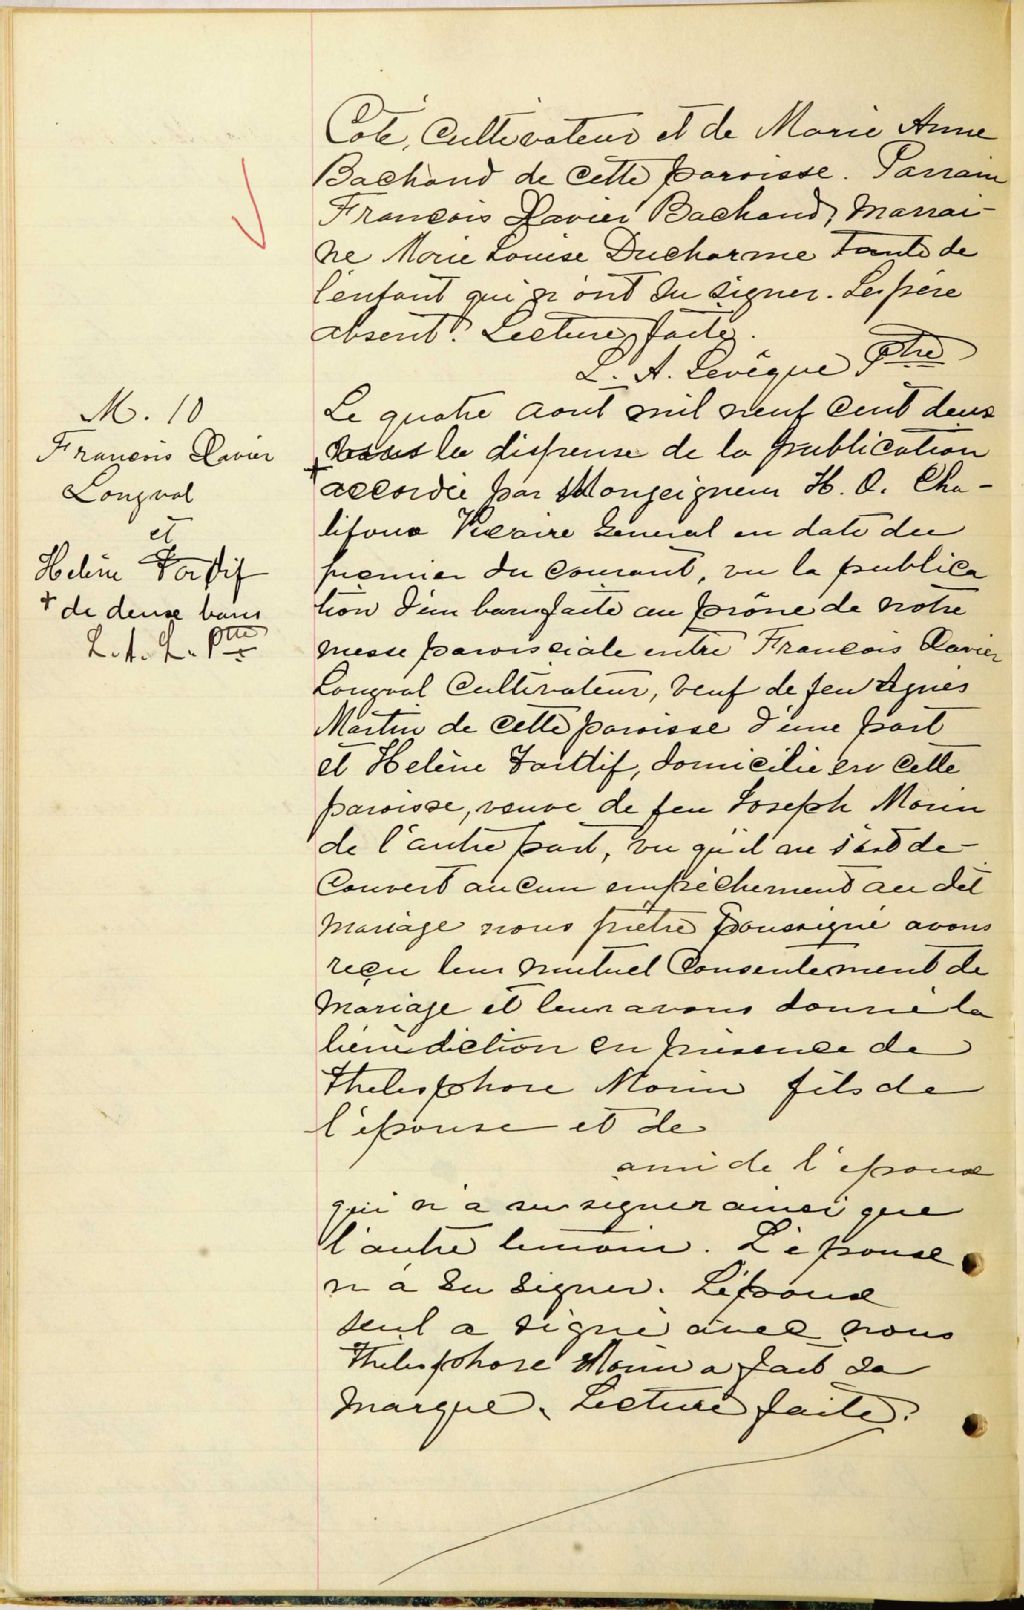 Coté, Cultivateur et de Marie Anne
Bachand de cette paroisse. Parrain
Francois Xavier Bachand, Marrai-
ne Marie Louise Ducharme tante de
l'enfant qui n'ont su signer. Le père
absent. Lecture faite.
L. A. Levêque Ptre
M. 10
Francois Xavier
Longval
et
Helène Tardif
+ de deux bans
L. A. L. Ptre
Le quatre aout mil neuf cent deux
+ la dispense de la publication
accordée par Monseigneur H. O. Cha-
lifoux Vicaire General en date du
premier du courant, vu la publica
tion d'un ban faite au prône de notre
messe paroissiale entre Francois Xavier
Longval Cultivateur, veuf de feu Agnès
Martin de cette paroisse d'une part
et Helène Tardif, domicilié en cette
paroisse, veuve de feu Joseph Morin
de l'autre part, vu qu'il ne s'est dé-
couvert aucun empêchement au dit
mariage nous prêtre soussigné avons
reçu leur mutuel consentement de
mariage et leur avons donné la
bénédiction en présence de
Thelesphore Morin fils de
l'épouse et de
ami de l'époux
qui n'a su signer ainsi que
l'autre temoin. L'épouse
n'a su signer. L'époux
seul a signé avec nous
Thelesphore Morin a fait sa
marque. Lecture faite.